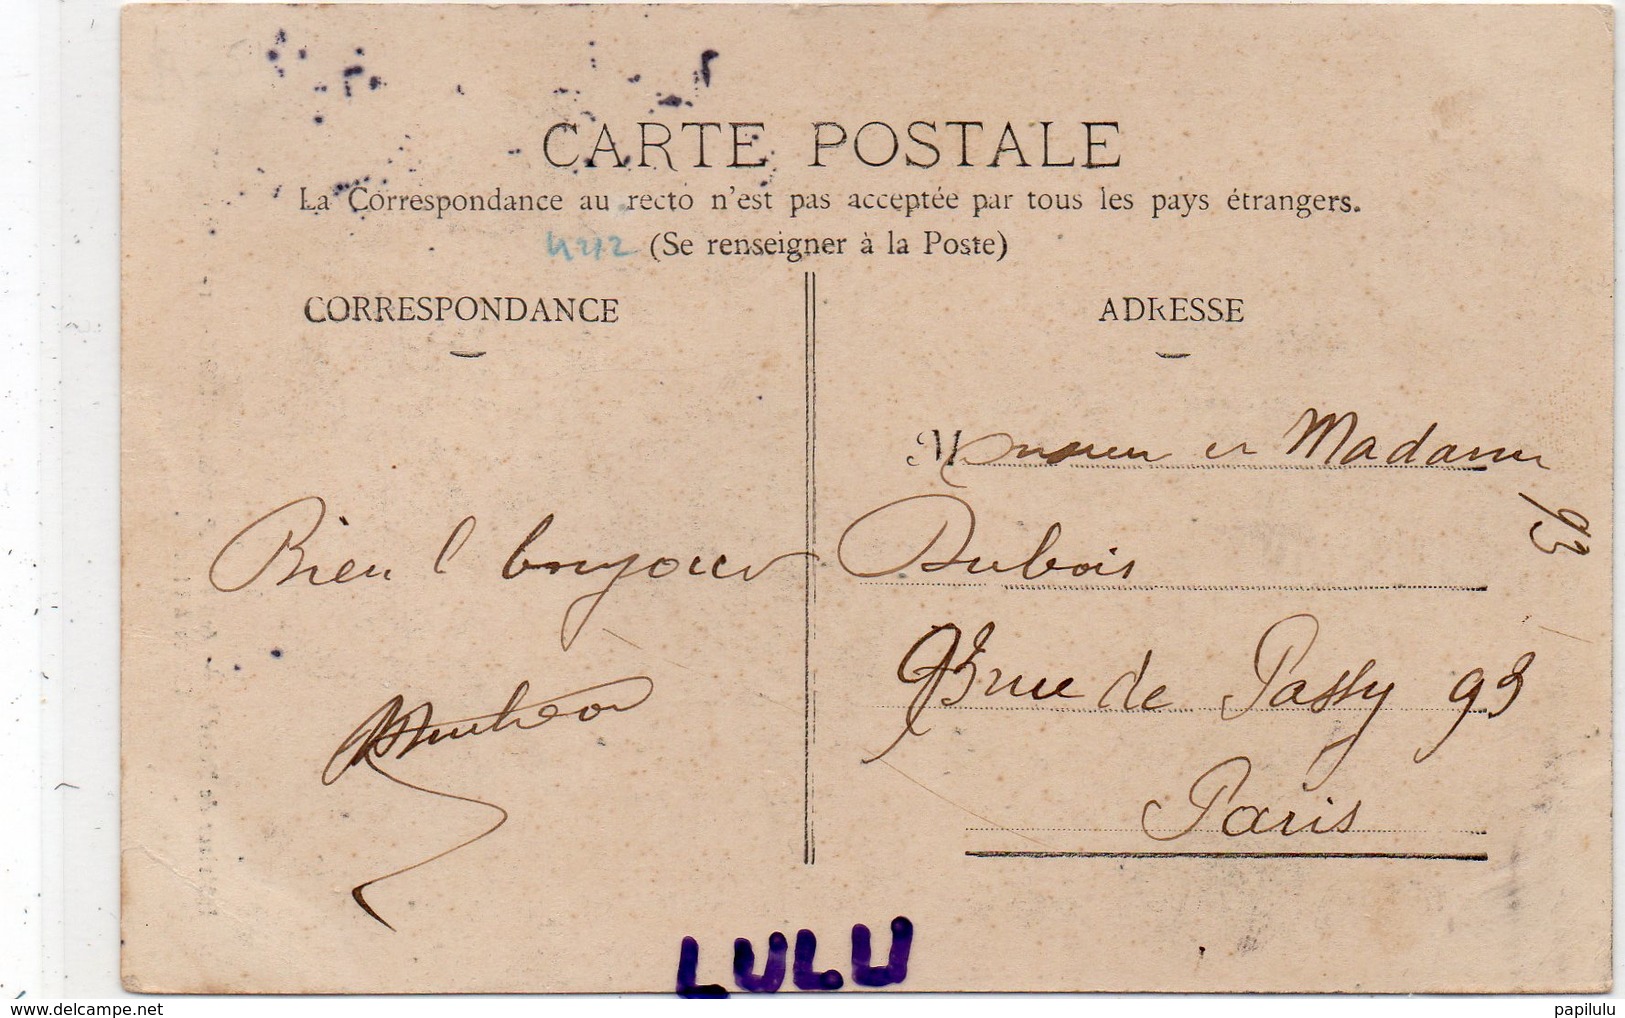 CARTE POSTALE
La Correspondance au recto n'est pas acceptée par tous les pays étrangers.
(Se renseigner à la Poste)
CORRESPONDANCE
Bien l bonjour
ADRESSE
Monsieur et Madame
Dubois
93 rue de Passy 93
Paris
93
LULU
https://www.delcampe.net
papilulu